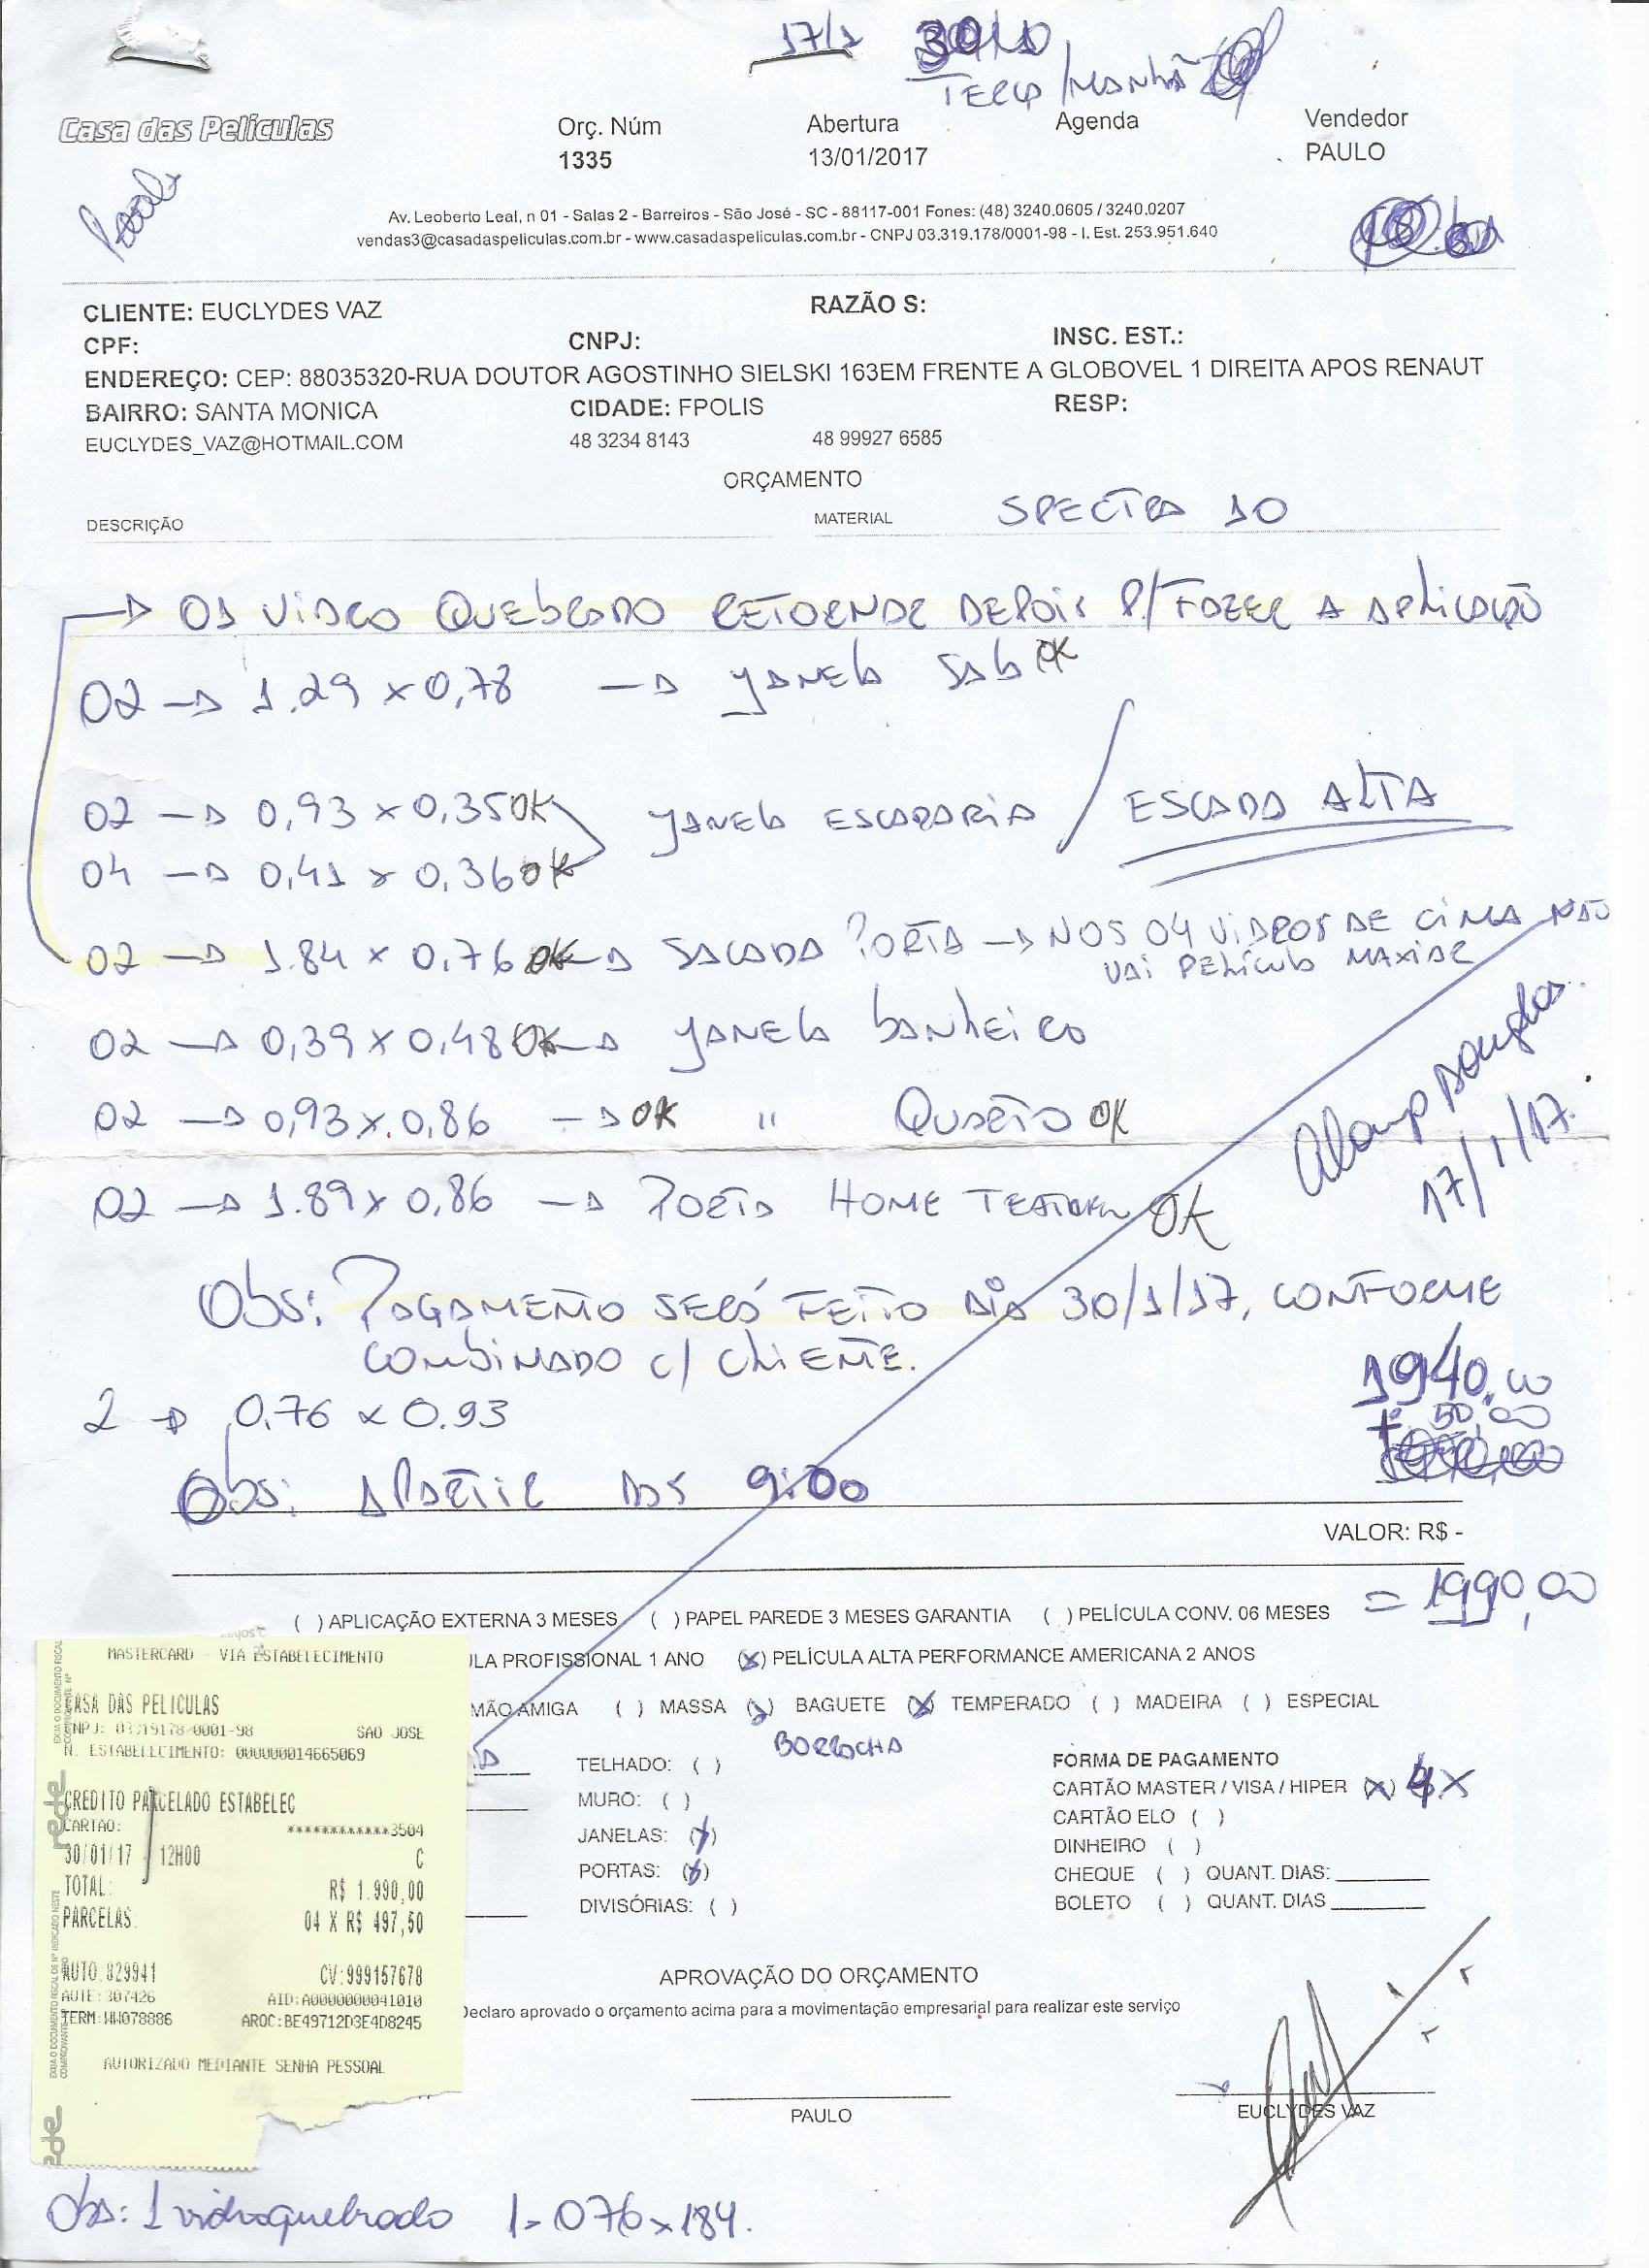 17/1 30/10
TERÇA / MANHÃ
Casa das Películas
Orç. Núm Abertura Agenda Vendedor
1335 13/01/2017 PAULO
Av. Leoberto Leal, n 01 - Salas 2 - Barreiros - São José - SC - 88117-001 Fones: (48) 3240.0605 / 3240.0207
vendas3@casadaspeliculas.com.br - www.casadaspeliculas.com.br - CNPJ 03.319.178/0001-98 - I. Est. 253.951.640
CLIENTE: EUCLYDES VAZ RAZÃO S:
CPF: CNPJ: INSC. EST.:
ENDEREÇO: CEP: 88035320-RUA DOUTOR AGOSTINHO SIELSKI 163EM FRENTE A GLOBOVEL 1 DIREITA APOS RENAUT
BAIRRO: SANTA MONICA CIDADE: FPOLIS RESP:
EUCLYDES_VAZ@HOTMAIL.COM 48 3234 8143 48 99927 6585
ORÇAMENTO
DESCRIÇÃO MATERIAL SPECTRA 10
→ 01 VIDRO QUEBRADO RETORNAR DEPOIS P/ FAZER A APLICAÇÃO
02 → 1.29 x 0,78 → JANELA SALA OK
02 → 0,93 x 0,35 OK JANELA ESCADARIA / ESCADA ALTA
04 → 0,41 x 0,36 OK
02 → 1.84 x 0,76 OK → SACADA PORTA → NOS 04 VIDROS DE CIMA NÃO
VAI PELÍCULA MAXIAR
02 → 0,39 x 0,48 OK → JANELA BANHEIRO
02 → 0,93 x 0,86 → OK " QUARTO OK
02 → 1.89 x 0,86 → PORTA HOME TEATHER OK
17/1/17.
Obs: PAGAMENTO SERÁ FEITO DIA 30/1/17, CONFORME
COMBINADO C/ CLIENTE.
1940,00
2 → 0.76 x 0.93
+ 50,00
Obs: APARTIR DAS 9:00
VALOR: R$ -
= 1990,00
( ) APLICAÇÃO EXTERNA 3 MESES ( ) PAPEL PAREDE 3 MESES GARANTIA ( ) PELÍCULA CONV. 06 MESES
LA PROFISSIONAL 1 ANO (X) PELÍCULA ALTA PERFORMANCE AMERICANA 2 ANOS
MÃO AMIGA ( ) MASSA (X) BAGUETE (X) TEMPERADO ( ) MADEIRA ( ) ESPECIAL
BORRACHA
TELHADO: ( )
MURO: ( )
JANELAS: (X)
PORTAS: (X)
DIVISÓRIAS: ( )
FORMA DE PAGAMENTO
CARTÃO MASTER / VISA / HIPER (X) 4X
CARTÃO ELO ( )
DINHEIRO ( )
CHEQUE ( ) QUANT. DIAS:
BOLETO ( ) QUANT. DIAS
MASTERCARD - VIA ESTABELECIMENTO
CASA DAS PELICULAS
CNPJ: 03319178/0001-98 SAO JOSE
N. ESTABELECIMENTO: 000000014665069
CREDITO PARCELADO ESTABELEC
CARTAO: ************3504
30/01/17 12H00 C
TOTAL: R$ 1.990,00
PARCELAS: 04 X R$ 497,50
AUTO:829941 CV:999157678
AUTE:307426 AID:A0000000041010
TERM:WW078886 ARQC:BE49712D3E4D8245
AUTORIZADO MEDIANTE SENHA PESSOAL
rede
APROVAÇÃO DO ORÇAMENTO
Declaro aprovado o orçamento acima para a movimentação empresarial para realizar este serviço
PAULO
EUCLYDES VAZ
Obs: 1 vidro quebrado 1 - 076 x 184.